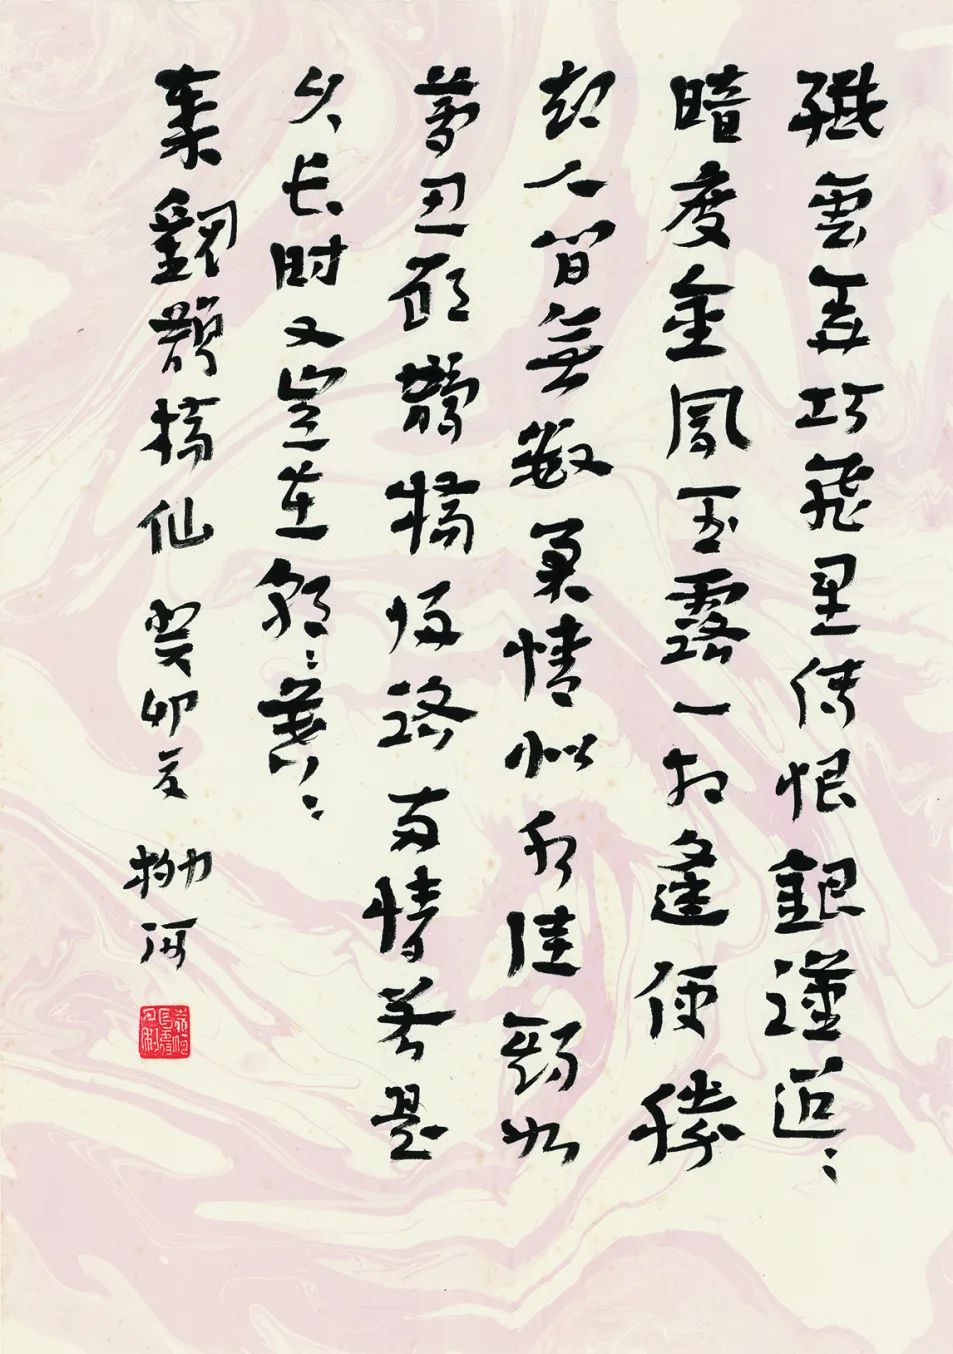 纖雲弄巧飛星傳恨銀漢迢〻
暗度金風玉露一相逢便勝
却人間無數柔情似水佳期如
夢忍顧鵲橋歸路兩情若是
久长时又豈在朝〻暮〻
秦觀鵲橋仙 癸卯夏